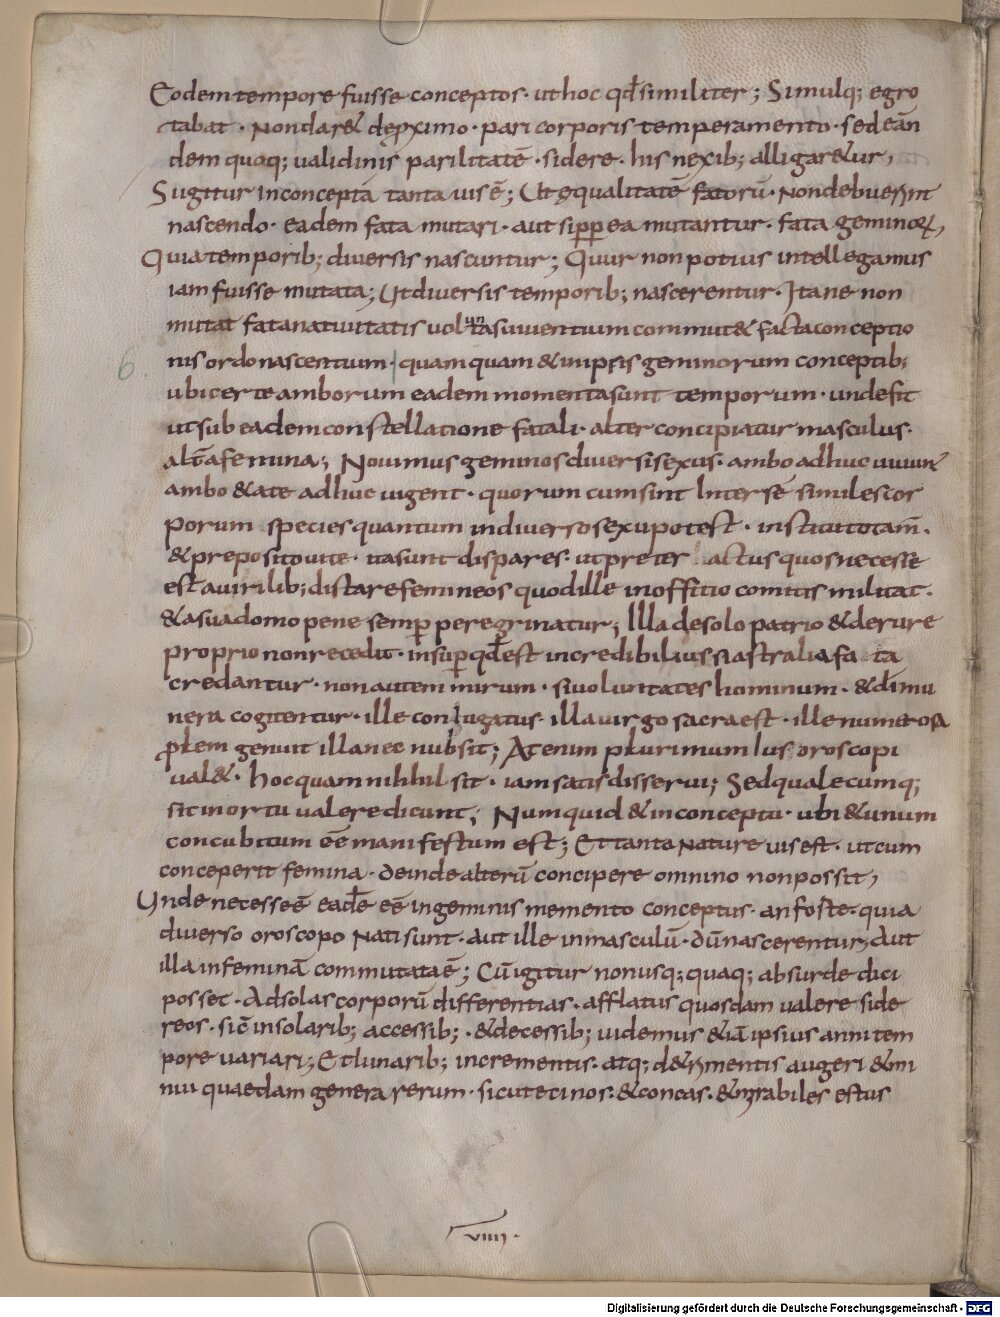 Eodem tempore fuisse conceptos · ut hoc qđ similiter ; Simulq; egro
tabat · Non daret de proximo · pari corporis temperamento · sed eān
dem quoq; validinis parilitatē · sidere · his nexib; alligaretur,
Sugitur inconcepta tanta vis ē; Ut equalitatē fatorū · Non debuerint
nascendo · eadem fata mutari · aut si propp ea mutantur · fata geminoꝝ,
Quia temporib; diversis nascuntur ; Quur non potius intellegamus
iam fuisse mutata ; Ut diversis temporib; nascerentur · Itane non
mutat fata nativitatis voluntas viventium commutet facta conceptio
6.
nis ordo nascentium · quam quam et in ipsis geminorum conceptib;
ubi certe amborum eadem momenta sunt temporum · unde fit
ut sub eadem constellatione fatali · alter concipiatur masculus ·
alt̄a femina ; Novimus geminos diversi sexus · ambo adhuc vivunt
ambo etate adhuc vigent · quorum cum sint Inter sē similes cor
porum species quantum in diverso sexu potest · instituto tam̄ ·
et preposito vite · ita sunt dispares · ut preter actus quos necesse
est a virilib; distare femineos quod ille in offitio comitis militat ·
et a sua domo pene semp peregrinatur ; Illa de solo patrio et de rure
proprio non recedit · insup qđ est incredibilius si astralia fa ta
credantur · non autem mirum · si voluntates hominum · et di mu
nera cogitentur · ille coniugatus · illa virgo sacra est · ille numerosa
plem genuit illa nec nubsit ; At enim plurimum Ius oroscopi
valet · hoc quam nihil sit · iam satis disserui ; Sed qualecumq;
sit in ortu valere dicunt ; Numquid et in conceptu · ubi et unum
concubitum eē manifestum est ; Et tanta nature vis est · ut cum
conceperit femina · deinde alterū concipere omnino non possit,
Unde necesse ē eadē eē in geminis memento conceptus · an foste · quia
diverso oroscopo Nati sunt · aut ille in masculū · dū nascerentur, aut
illa in feminā commutata ē ; Cū igitur non usq; quaq; absurde dici
posset · Ad solas corporū differentias · afflatus quosdam valere side
reos · sic̄ in solarib; accessib; · et decessib; videmus etiā ipsius anni tem
pore variari ; Et lunarib; incrementis · atq; detrimentis augeri et mi
nui quaedam genera rerum · sicut ecinos · et concas · et mirabiles estus
VIIII ·
Digitalisierung gefördert durch die Deutsche Forschungsgemeinschaft - DFG